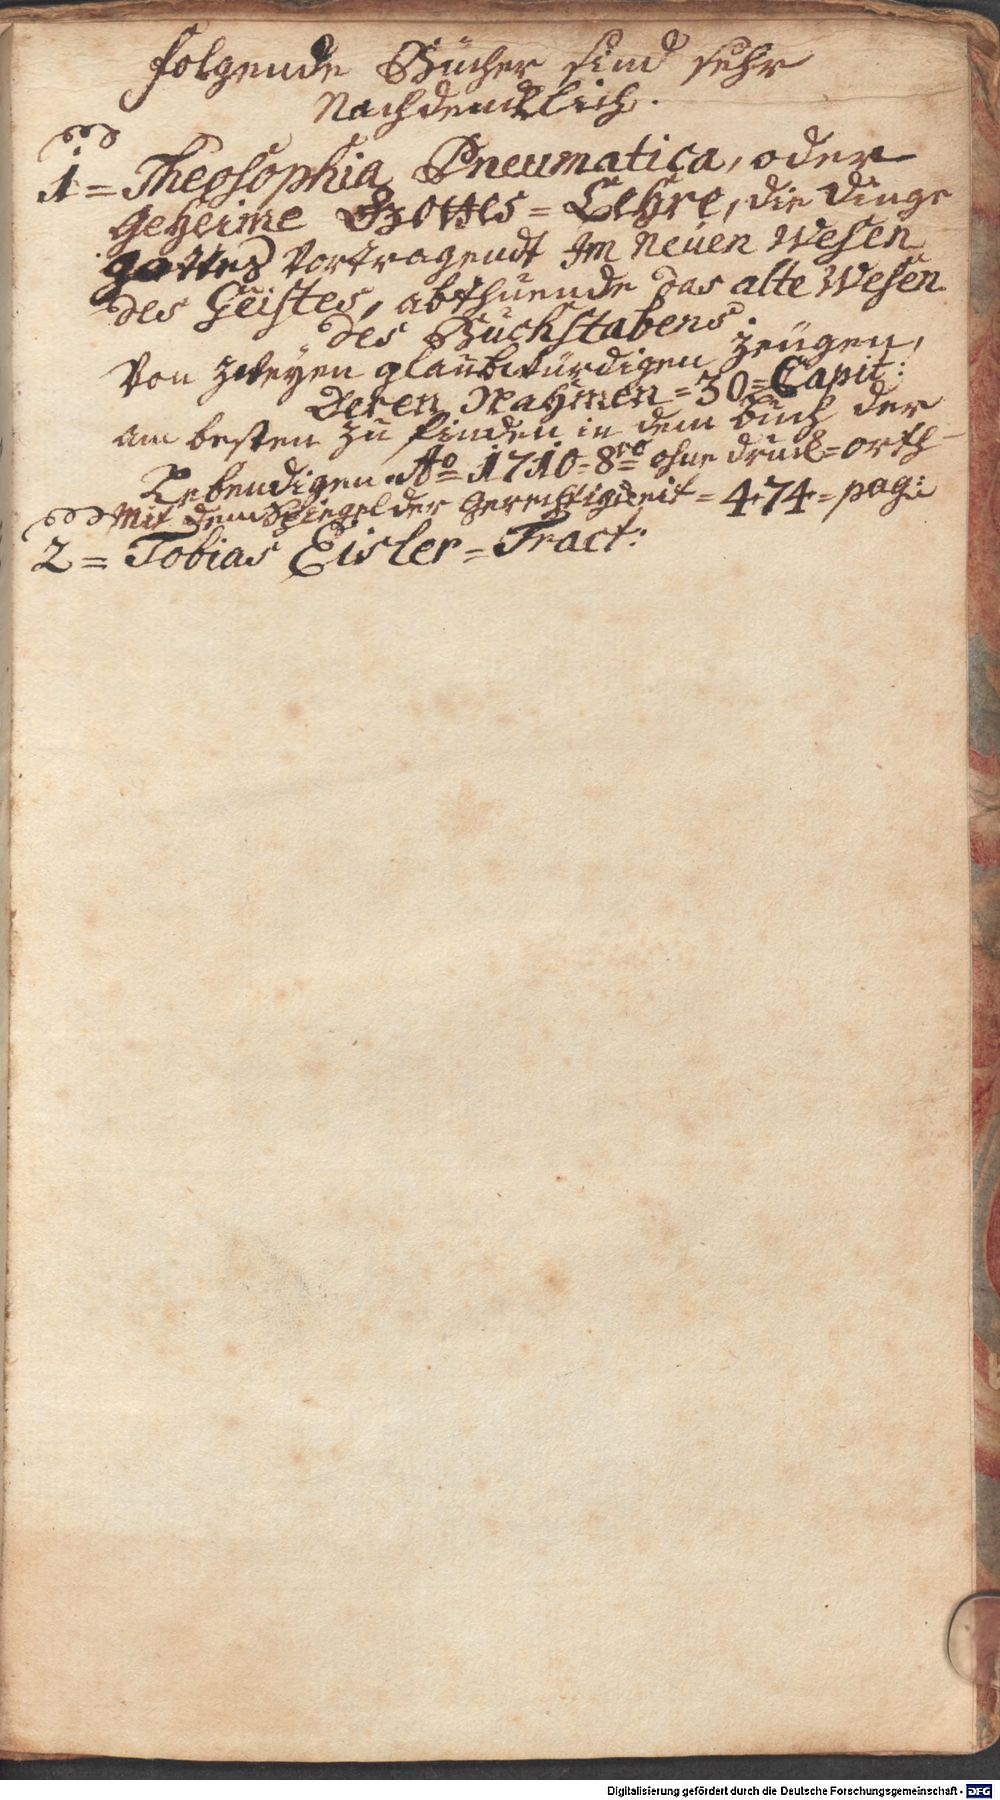 Folgende Bücher sind sehr
Nachdencklich.
1 = Theosophia Pneumatica, oder
Geheime Gottes = Lehre, die Dinge
gottes Vortragendt Im Neuen Wesen
des Geistes, abthuende das alte Wesen
des Buchstabens.
Von zweyen glaubwürdigen Zeugen,
Deren Nahmen = 30 = Capit:
am besten zu finden in dem buch der
Lebendigen A⁰ 1710 = 8ro ohne druck = orth
Mit dem Spiegel der Gerechtigkeit = 474 = pag:
2 = Tobias Eisler = Tract:
Digitalisierung gefördert durch die Deutsche Forschungsgemeinschaft - DFG